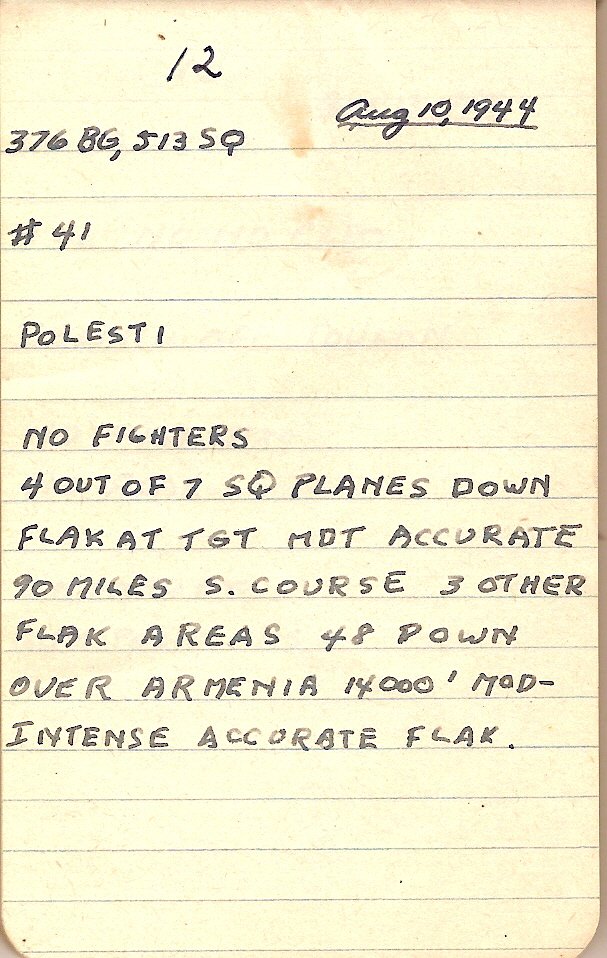 12
Aug 10, 1944
376 BG, 513 SQ
# 41
POLESTI
NO FIGHTERS
4 OUT OF 7 SQ PLANES DOWN
FLAK AT TGT MDT ACCURATE
90 MILES S. COURSE 3 OTHER
FLAK AREAS 48 DOWN
OVER ARMENIA 14000' MOD-
INTENSE ACCURATE FLAK.